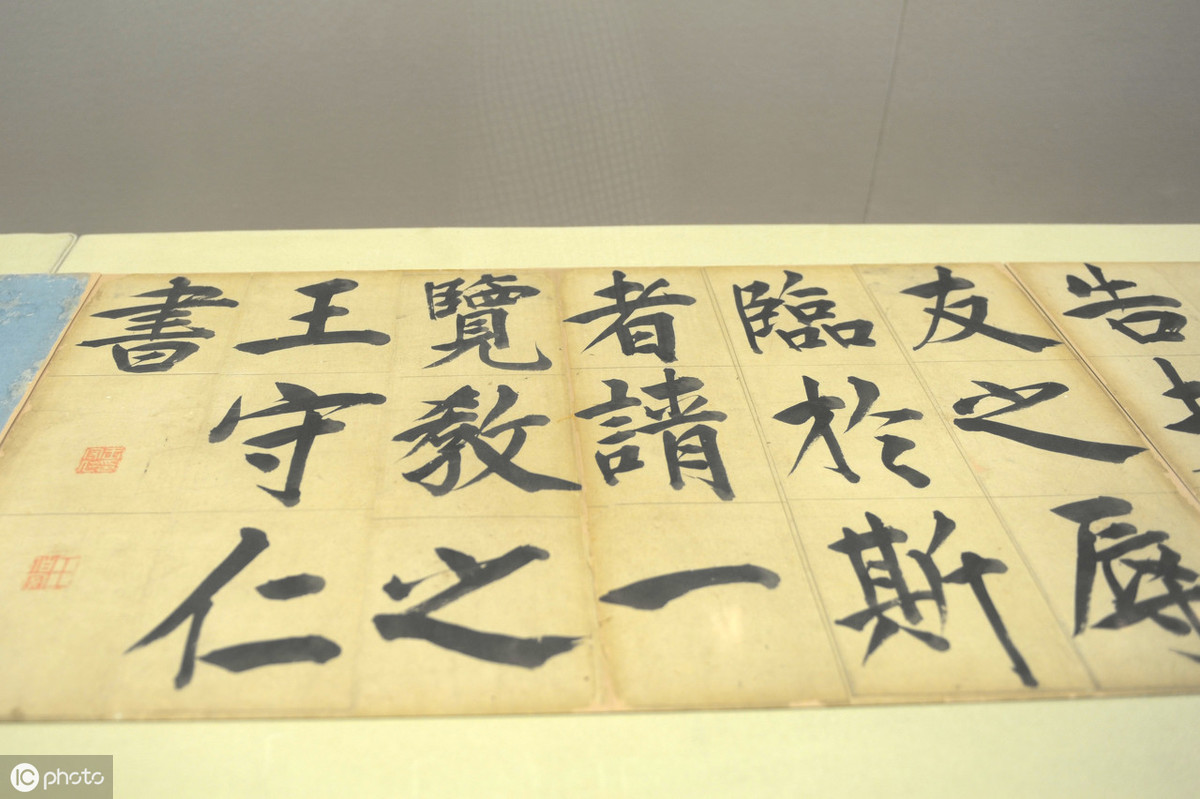 告
辱
友之斯
臨於
者請一
覽教之
王守仁
書
IC photo